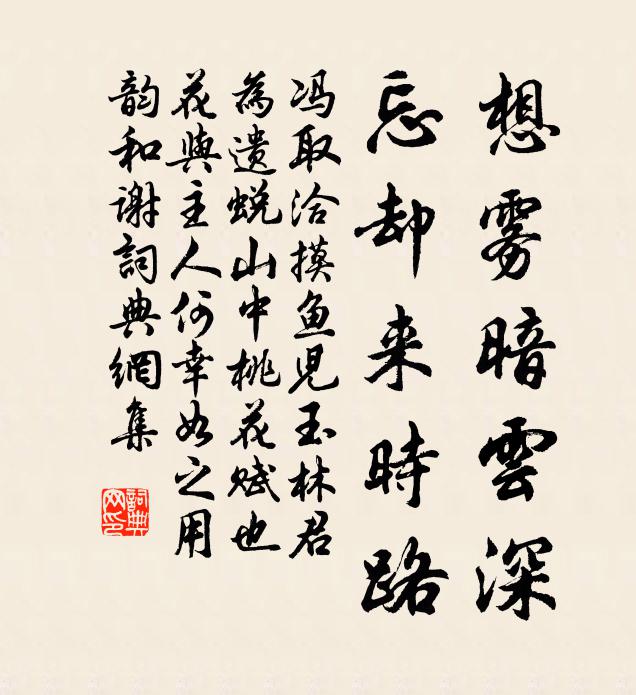 想雾暗雲深
忘却来時路
冯取洽摸鱼児玉林君
為遗蜕山中桃花赋也
花與主人何幸如之用
韵和谢詞典網集
詞典网印